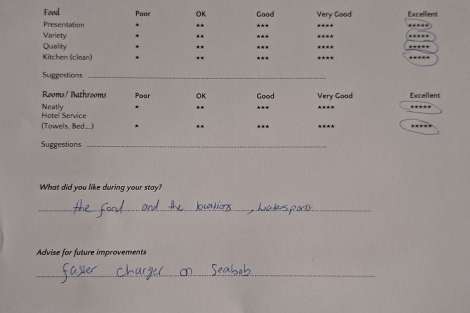 Food Poor OK Good Very Good Excellent
Presentation * ** *** **** *****
Variety * ** *** **** *****
Quality * ** *** **** *****
Kitchen (clean) * ** *** **** *****
Suggestions
Rooms/ Bathrooms Poor OK Good Very Good Excellent
Neatly * ** *** **** *****
Hotel Service
(Towels, Bed...) * ** *** **** *****
Suggestions
What did you like during your stay?
the food and the
Advise for future improvements
faster charger on Seabob